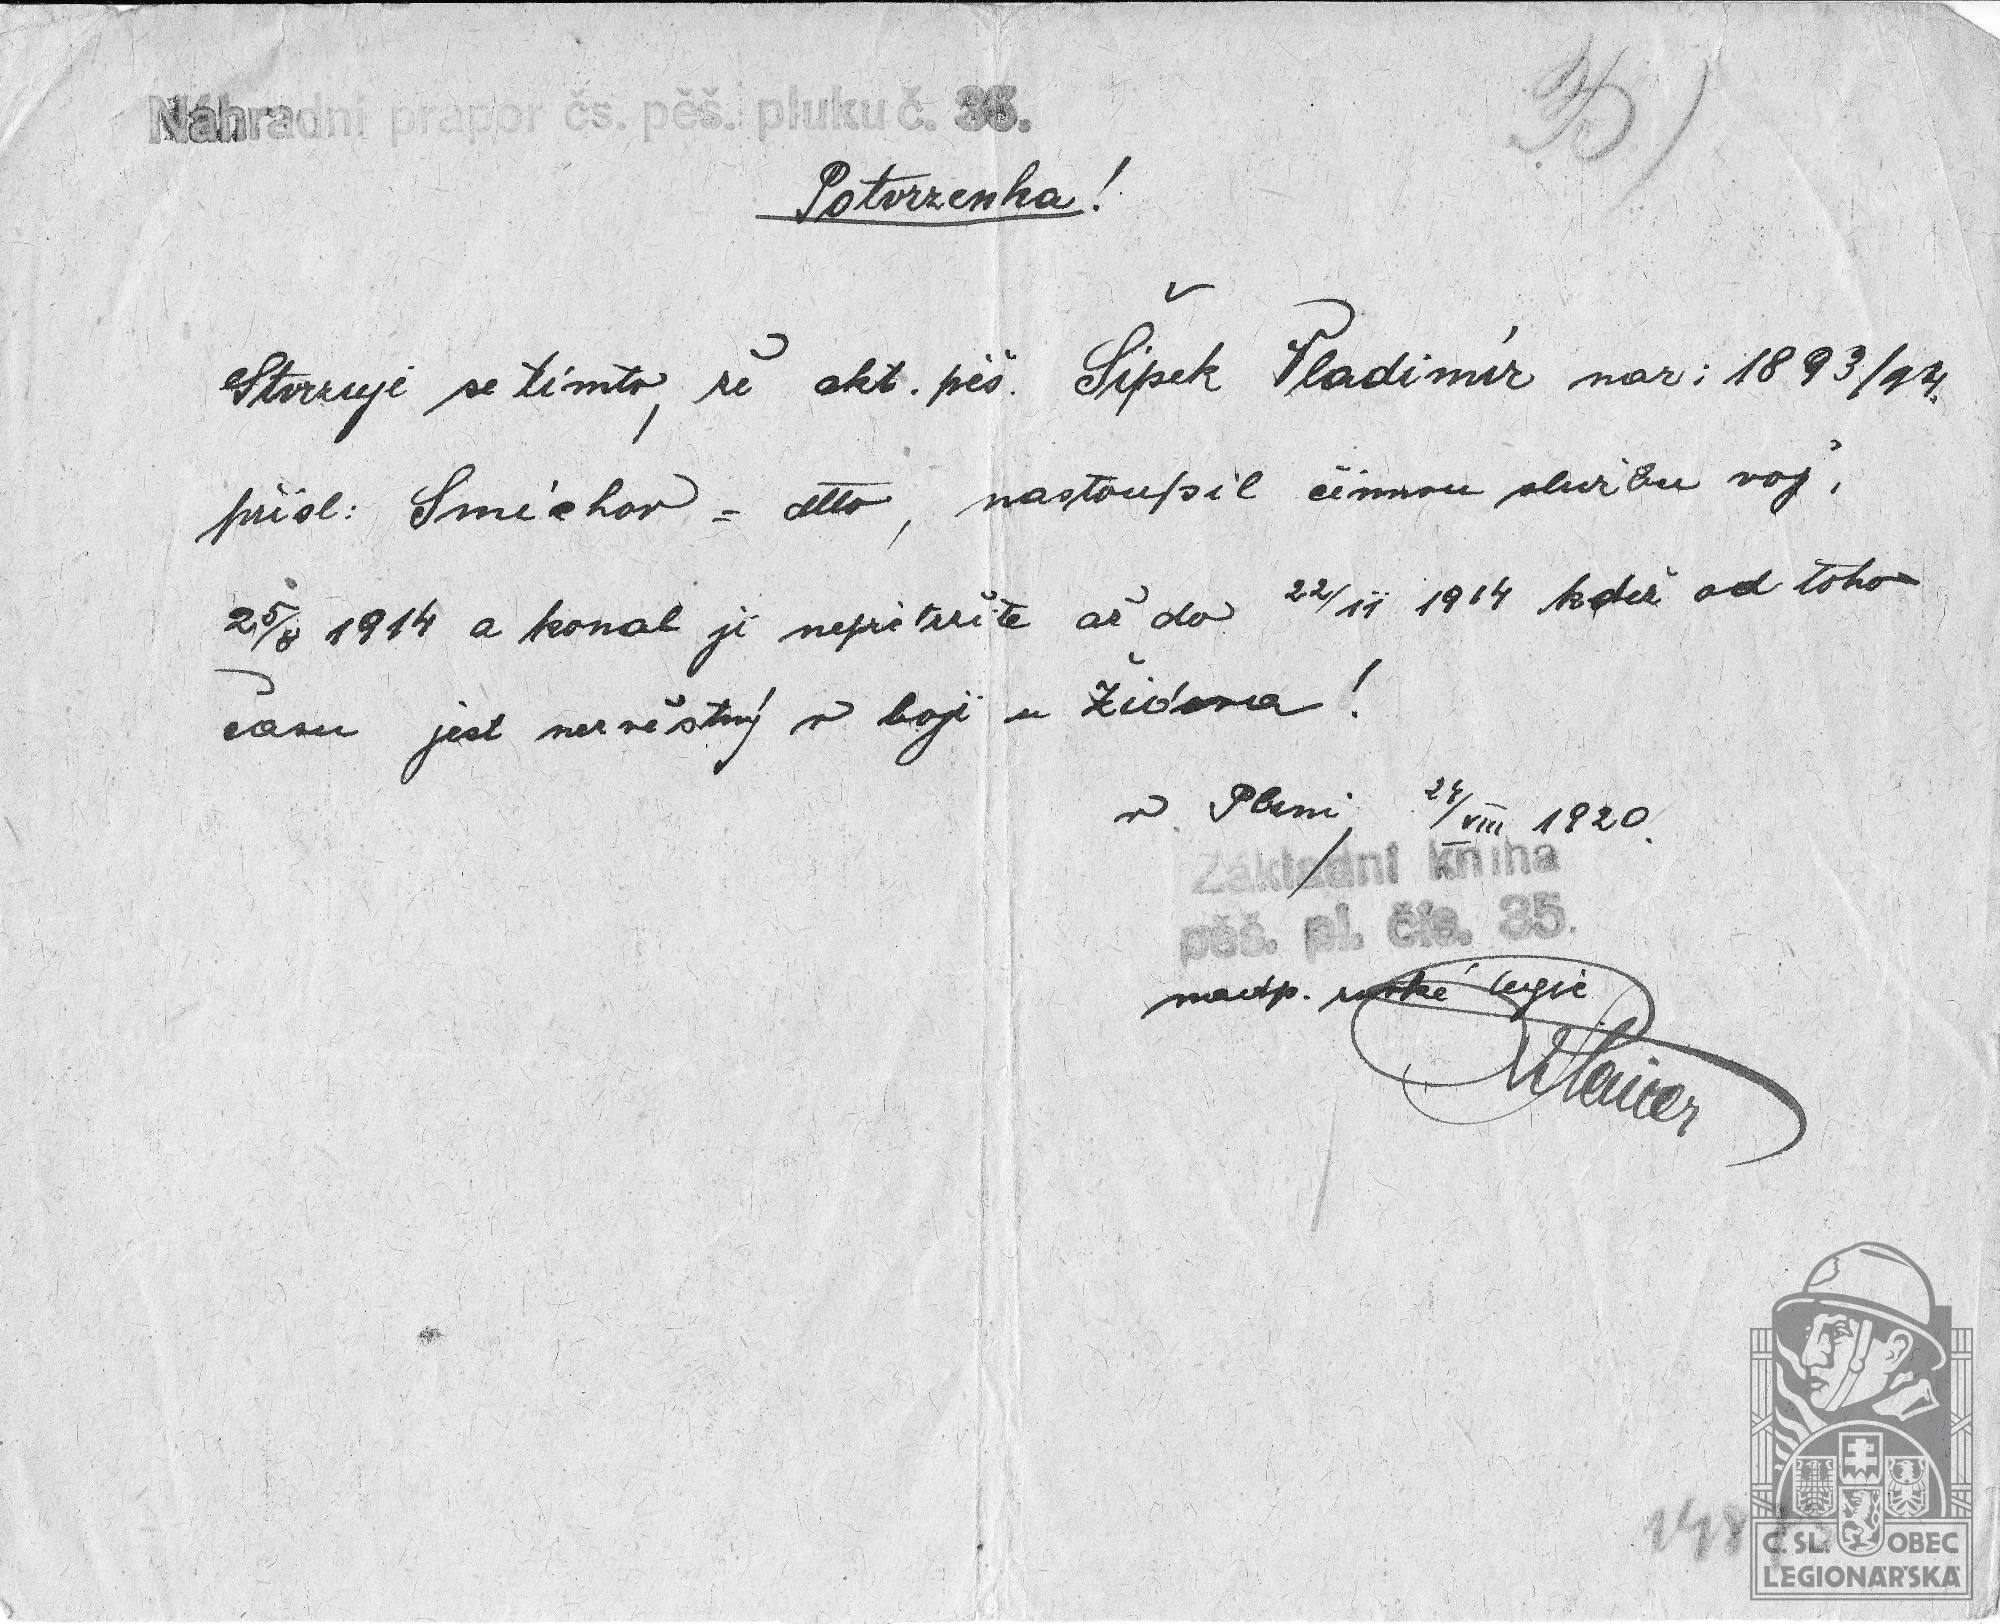 Náhradní prapor čs. pěš. pluku č. 35.
Potvrzenka!
Stvrzuji se tímto, že akt. pěš. Šípek Vladimír nar: 1893/94.
přísl: Smíchov = dtto, nastoupil činnou službu voj.
25/8 1914 a konal ji nepřitržitě až do 22/11 1914 kdež od toho
času jest nezvěstný v boji u Židova!
v Plzni, 24/VIII 1920.
Základní kniha
pěš. pl. čís. 35.
ruské legie
1487
Č. SL. OBEC
LEGIONÁŘSKÁ